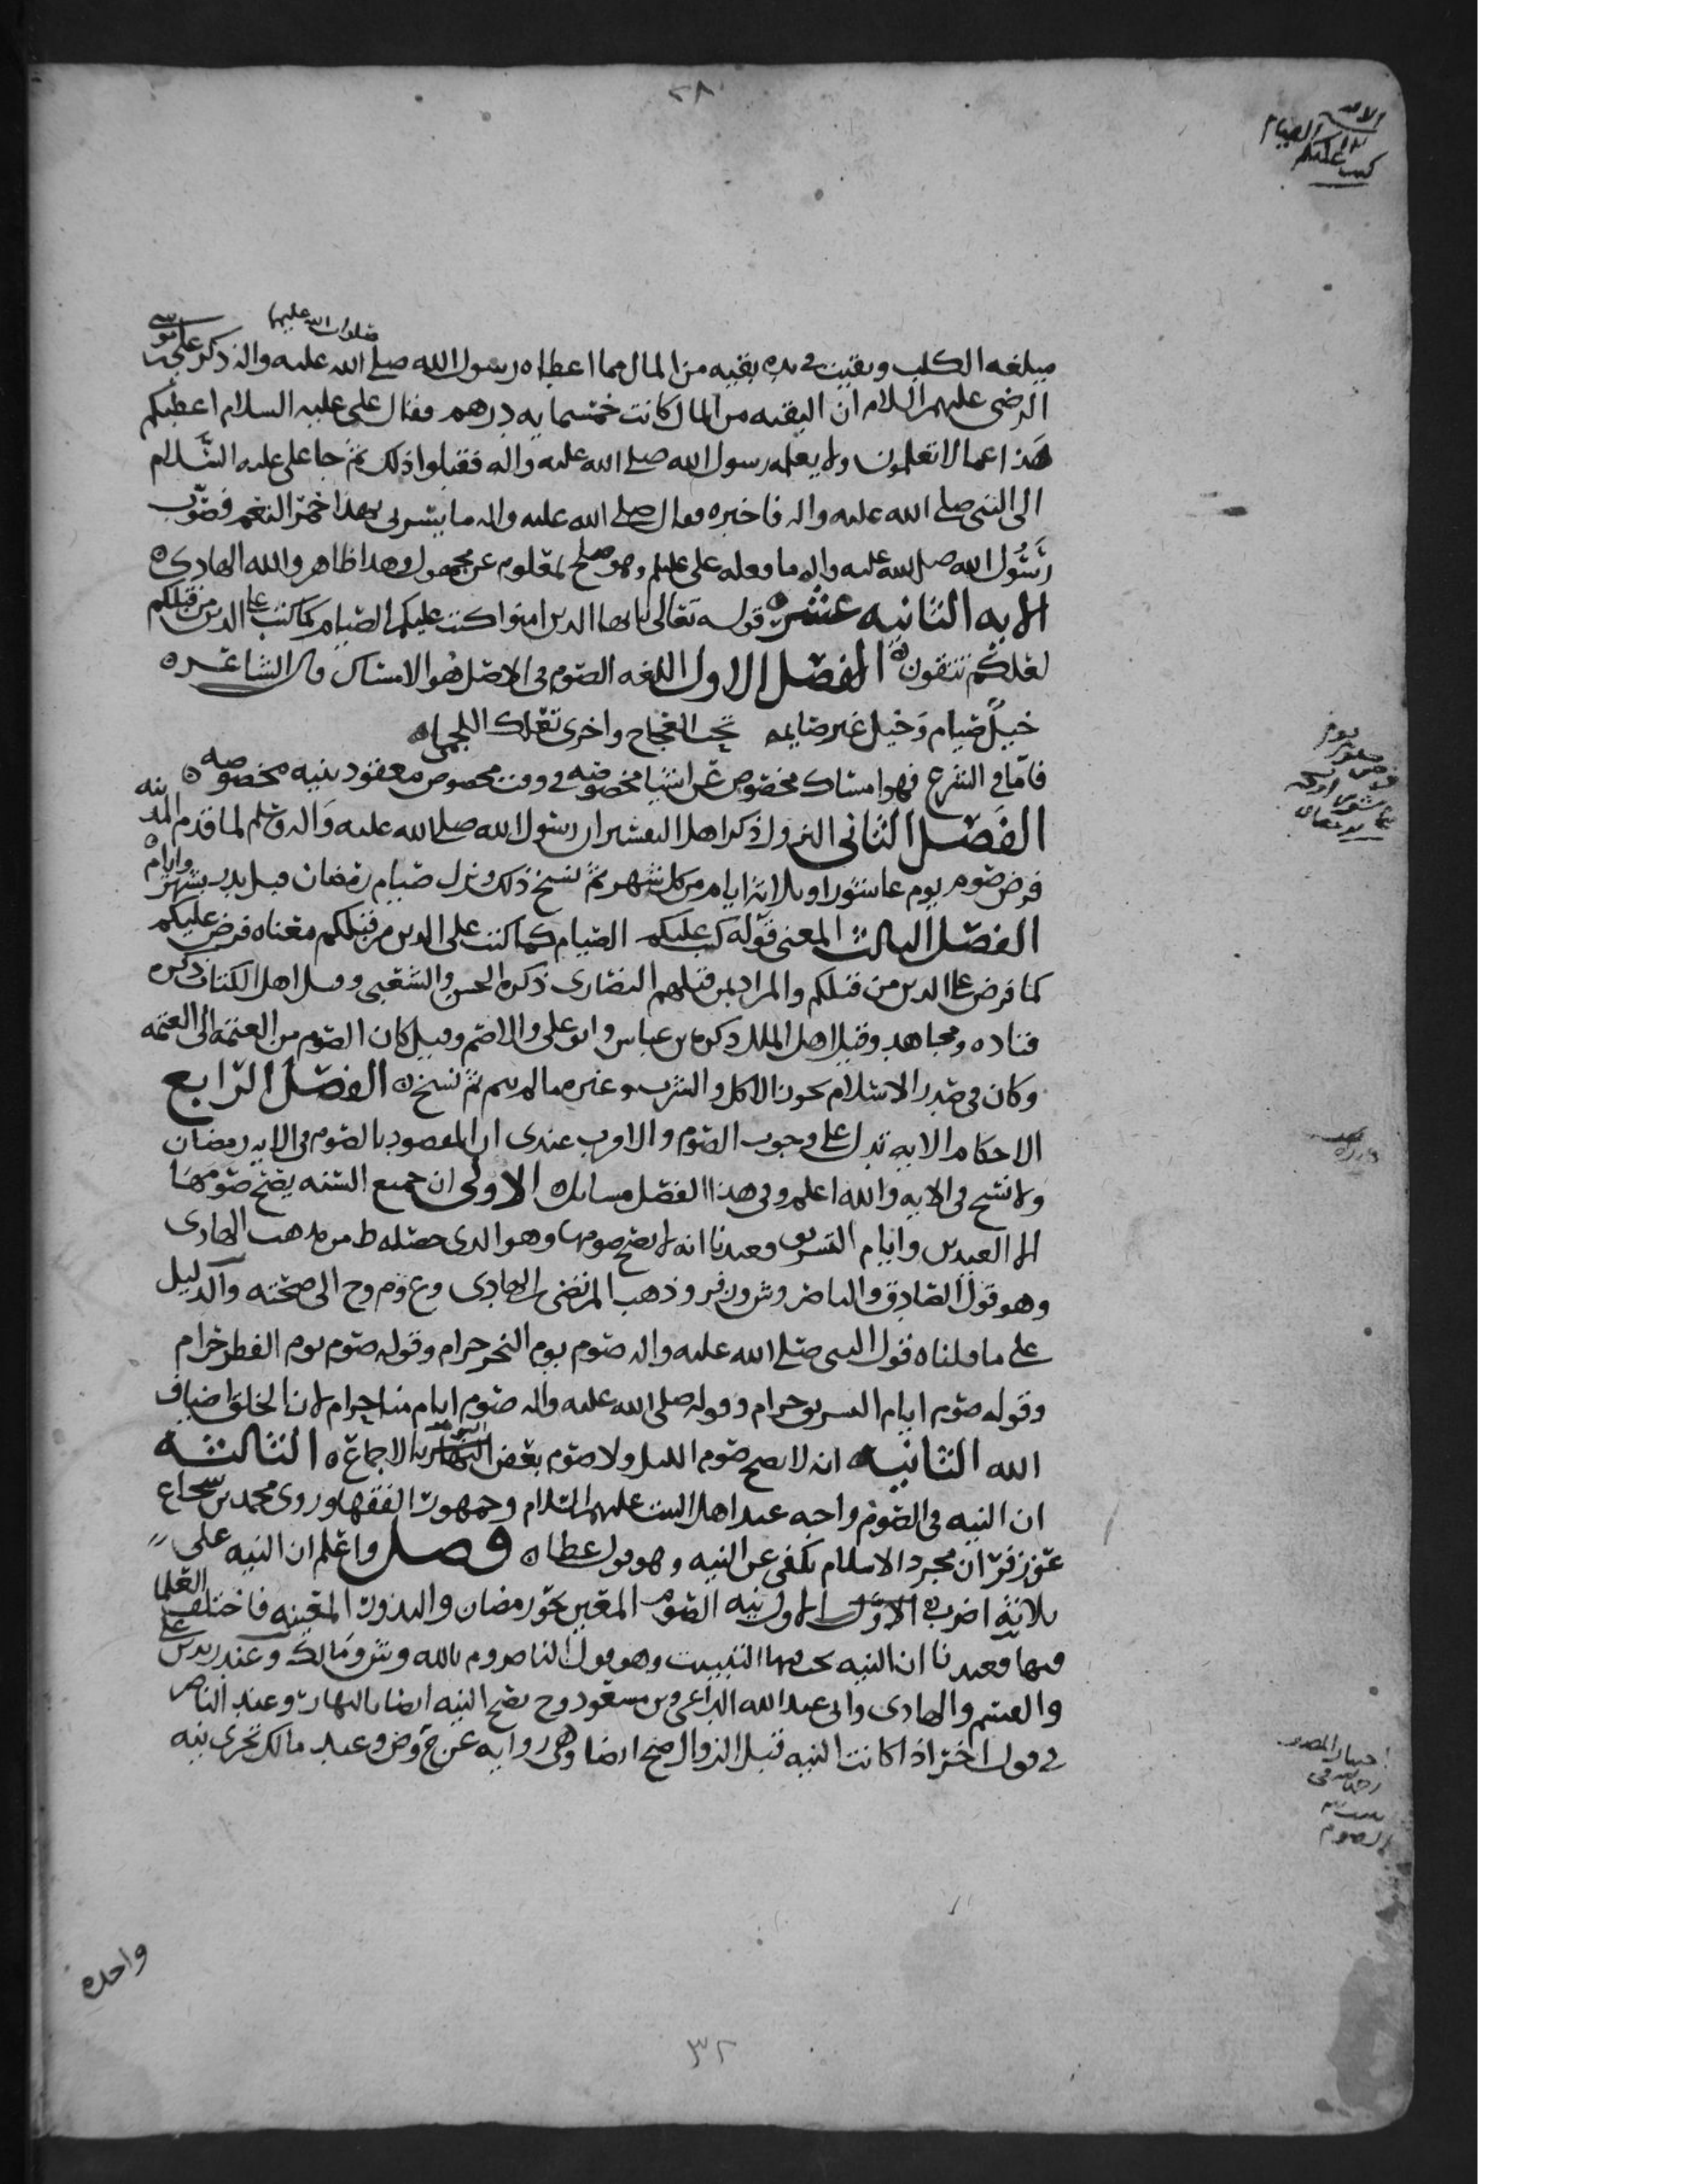 ٢٨
الايه
كتب عليكم الصيام
صلوات الله عليهما
ميلغه الكلب وبقيت في يده بقيه من المال مما اعطاه رسول الله صلى الله عليه واله ذكر علي بن موسى
الرضى عليهم السلام ان البقيه من المال كانت خمسمايه درهم فقال علي عليه السلام اعطيكم
هذا عما لا تعلمون ولا يعلمه رسول الله صلى الله عليه واله فقبلوا ذلك ثم جا علي عليه السلام
الى النبي صلى الله عليه واله فاخبره فقال صلى الله عليه واله ما يسرني بهذا حمر النعم فصوب
رسول الله صلى الله عليه واله ما فعله علي عليلم وهو صلح لمعلوم عن مجهول وهذا ظاهر والله الهادي ه
الايه الثانيه عشره قوله تعالى يا ايها الذين امنوا كتب عليكم الصيام كما كتب على الذين من قبلكم
لعلكم تتقون ه الفصل الاول اللغه الصوم في الاصل هو الامساك قال الشاعر ه
خيل صيام وخيل غير صايمه تحت العجاج واخرى تعلك اللجما ه
فاما في الشرع فهو امساك مخصوص عن اشيا مخصوصه في وقت مخصوص معقود بنيه مخصوصه ه
الفصل الثاني النزول ذكر اهل التفسير ان رسول الله صلى الله عليه واله وسلم لما قدم المدينه
فرض صوم يوم عاشورا وثلاثه ايام من كل شهر ثم نسخ ذلك ونزل صيام رمضان قبل بدر بشهر وايام ه
الفصل الثالث المعنى قوله كتب عليكم الصيام كما كتب على الذين من قبلكم معناه فرض عليكم
كما فرض على الذين من قبلكم والمراد بمن قبلهم النصارى ذكره الحسن والشعبي وقيل اهل الكتاب ذكره
قتاده ومجاهد وقيل اهل الملل ذكره بن عباس وابو علي والاصم وقيل كان الصوم من العتمه الى العتمه
وكان في صدر الاسلام يجوز الاكل والشرب وغيره ما لم ينم ثم نسخ ه الفصل الرابع
الاحكام الايه تدل على وجوب الصوم والاقرب عندي ان المقصود بالصوم في الايه رمضان
ولا نسخ في الايه والله اعلم وفي هذا الفصل مسايل ه الاولى ان جميع السنه يصح صومها
الا العيدين وايام التشريق وعندنا انه لا يصح صومها وهو الذي حصله ط من مذهب الهادي
وهو قول الصادق والناصر وش وفر وذهب المرتضى الهادي وع وم وح الى صحته والدليل
على ما قلناه قول النبي صلى الله عليه واله صوم يوم النحر حرام وقوله صوم يوم الفطر حرام
وقوله صوم ايام التشريق حرام وقوله صلى الله عليه واله صوم ايام منا حرام لان الخلق اضياف
الله الثانيه انه لا يصح صوم الليل ولا صوم بعض اليوم بالاجماع ه الثالثه
ان النيه في الصوم واجبه عند اهل البيت عليهم السلام وجمهور الفقها وروى محمد بن شجاع
عن زفر ان مجرد الاسلام يكفي عن النيه وهو قول عطا ه فصل واعلم ان النيه على
ثلاثه اضرب ه الاول نيه الصوم المعين نحو رمضان والنذور المعينه فاختلف العلما
فيها فعندنا ان النيه يجب فيها التبييت وهو قول الناصر وم بالله وش ومالك وعند زيد بن علي
والقسم والهادي وابي عبد الله الداعي وبن مسعود وح يصح النيه ايضا بالنهار وعند الناصر
في قول اخر اذا كانت النيه قبل الزوال صح ايضا وهي رواية عن ح وص وعند مالك تجزي نيه
يوم
اختيار المصنف
رحمه الله في
تبييت نيه
الصوم
واحده
٣٢